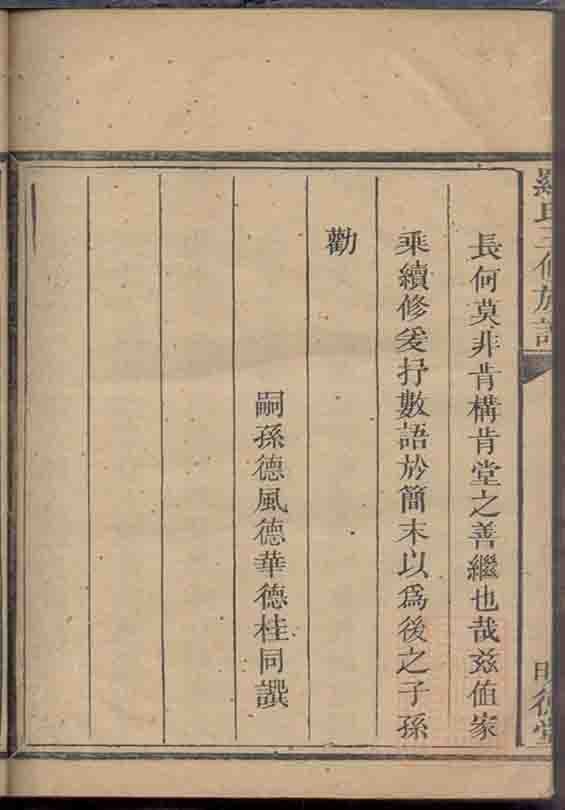 羅氏三修族譜
明德堂
長何莫非肯構肯堂之善繼也哉兹值家
乘續修爰抒數語於簡末以爲後之子孫
勸
嗣孫德風德華德桂同譔